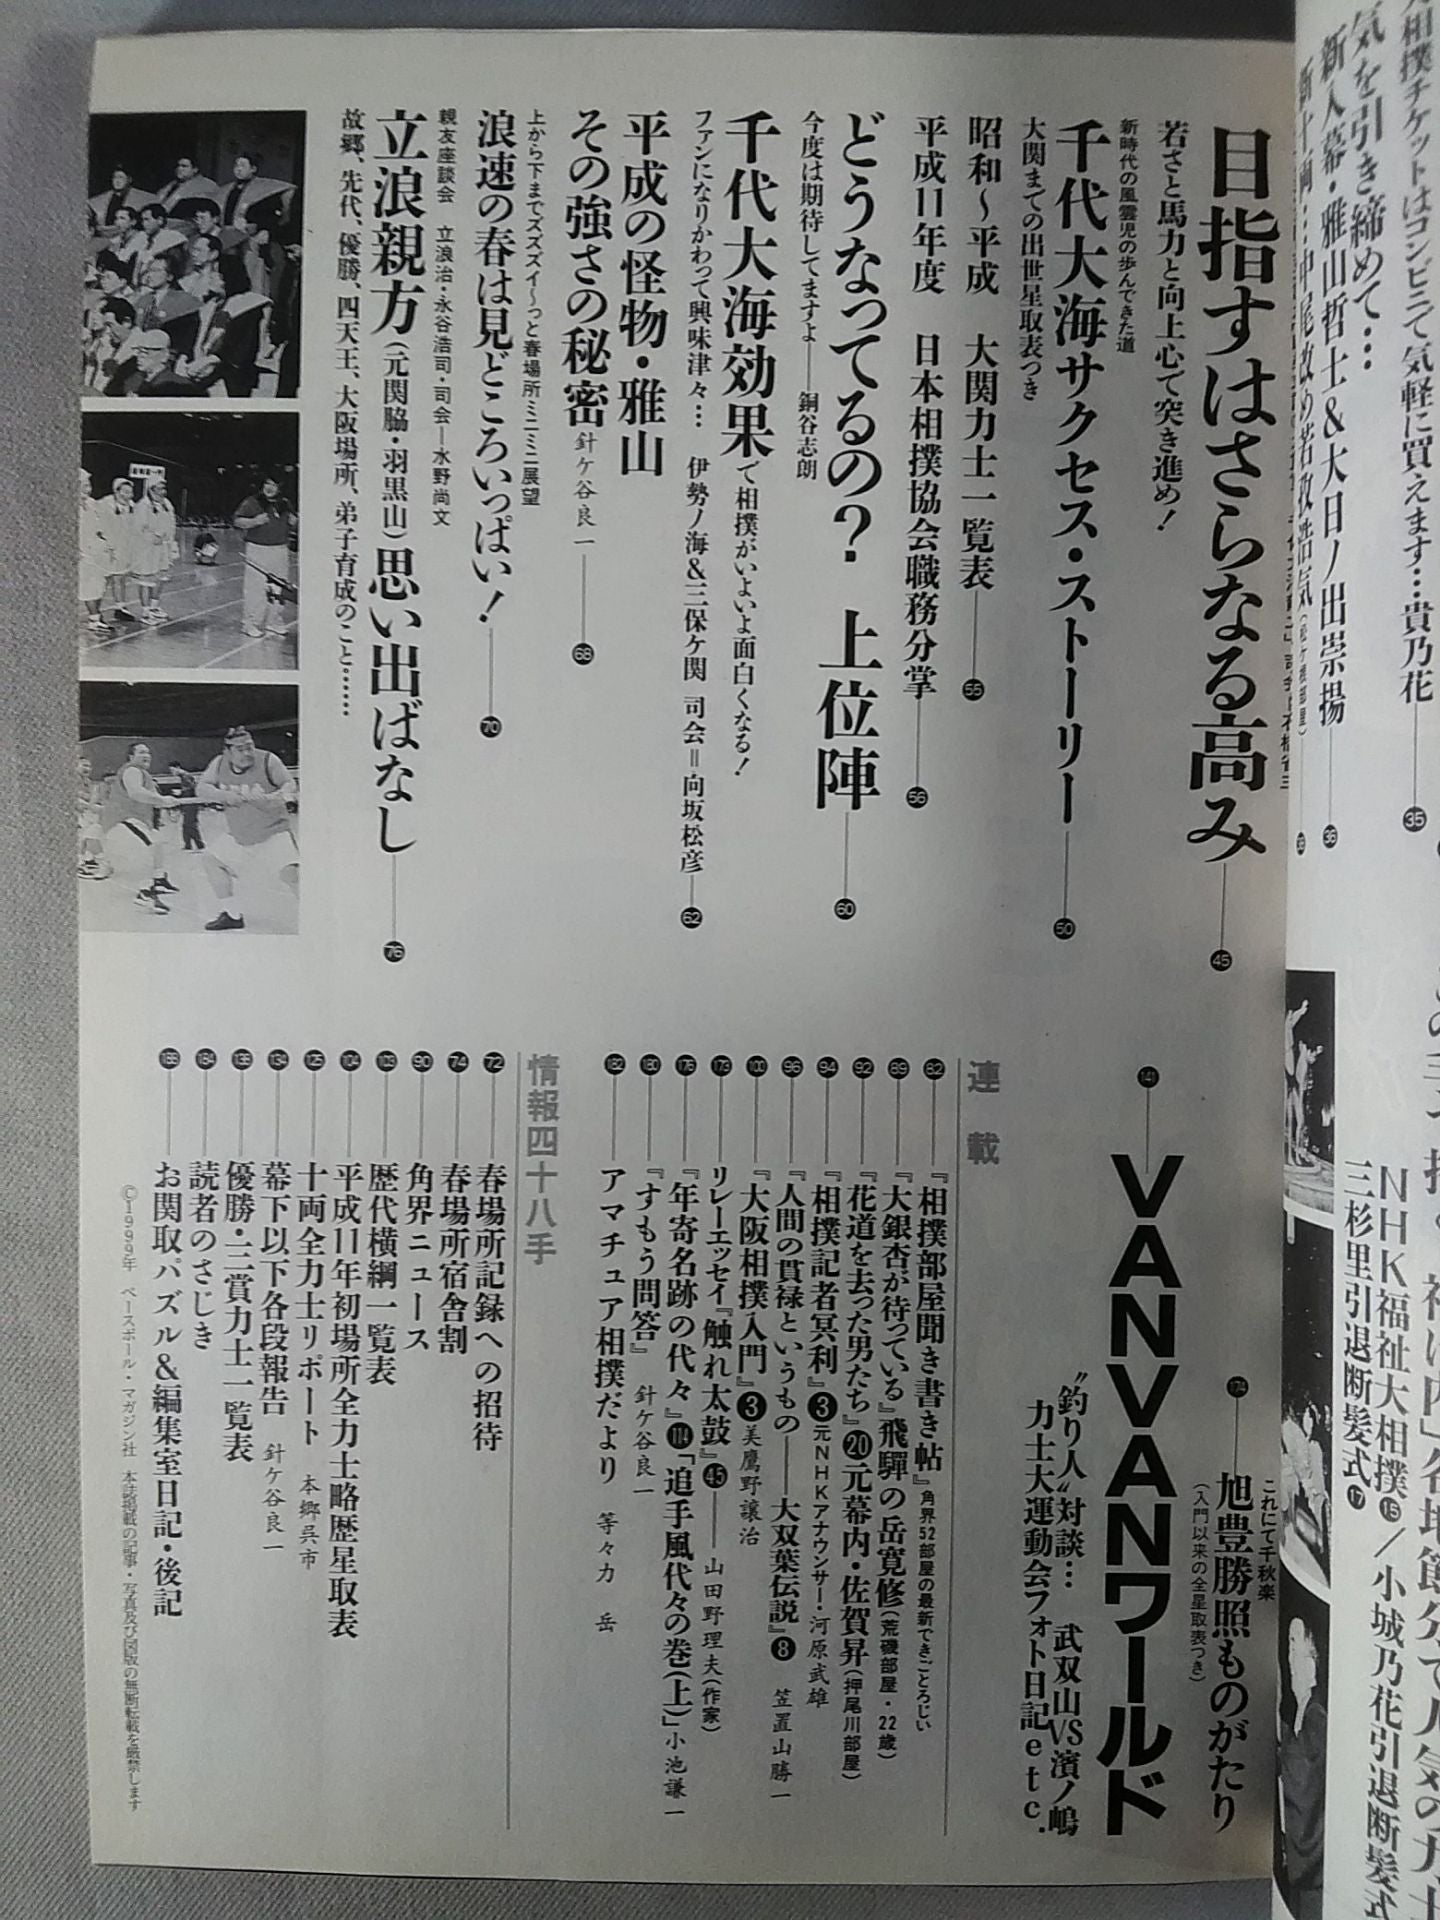 相撲チケットはコンビニで気軽に買えます…貴乃花
35
気を引き締めて…
新入幕・雅山哲士&大日ノ出崇揚
36
NHK福祉大相撲⓯／小城乃花引退断髪式
三杉里引退断髪式⓱
目指すはさらなる高み
45
若さと馬力と向上心で突き進め！
新時代の風雲児の歩んできた道
千代大海サクセス・ストーリー
50
大関までの出世星取表つき
昭和〜平成 大関力士一覧表
55
平成11年度 日本相撲協会職務分掌
56
どうなってるの？ 上位陣
60
今度は期待してますよ──銅谷志朗
千代大海効果で相撲がいよいよ面白くなる！
ファンになりかわって興味津々… 伊勢ノ海&三保ケ関 司会＝向坂松彦
62
平成の怪物・雅山
その強さの秘密 針ケ谷良一
68
上から下までズズズイ〜っと春場所ミニミニ展望
浪速の春は見どころいっぱい！
70
親友座談会 立浪治・永谷浩司・司会─水野尚文
立浪親方（元関脇・羽黒山）思い出ばなし
76
故郷、先代、優勝、四天王、大阪場所、弟子育成のこと……
これにて千秋楽
174
旭豊勝照ものがたり
（入門以来の全星取表つき）
141
VANVANワールド
“釣り人”対談… 武双山VS濱ノ嶋
力士大運動会フォト日記etc.
連載
82 『相撲部屋聞き書き帖』角界52部屋の最新できごとろじい
89 『大銀杏が待っている』飛騨の岳寛修（荒磯部屋・22歳）
92 『花道を去った男たち』⓴元幕内・佐賀昇（押尾川部屋）
94 『相撲記者冥利』❸元NHKアナウンサー・河原武雄
96 『人間の貫禄というもの──大双葉伝説』❽ 笠置山勝一
100 『大阪相撲入門』❸美鷹野譲治
173 リレーエッセイ『触れ太鼓』㊺──山田野理夫（作家）
176 『年寄名跡の代々』114「追手風代々の巻（上）」小池謙一
180 『すもう問答』 針ケ谷良一
182 アマチュア相撲だより 等々力 岳
情報四十八手
72 春場所記録への招待
74 春場所宿舎割
90 角界ニュース
103 歴代横綱一覧表
104 平成11年初場所全力士略歴星取表
125 十両全力士リポート 本郷呉市
134 幕下以下各段報告 針ケ谷良一
優勝・三賞力士一覧表
184 読者のさじき
お関取パズル&編集室日記・後記
©1999年 ベースボール・マガジン社 本誌掲載の記事・写真及び図版の無断転載を厳禁します